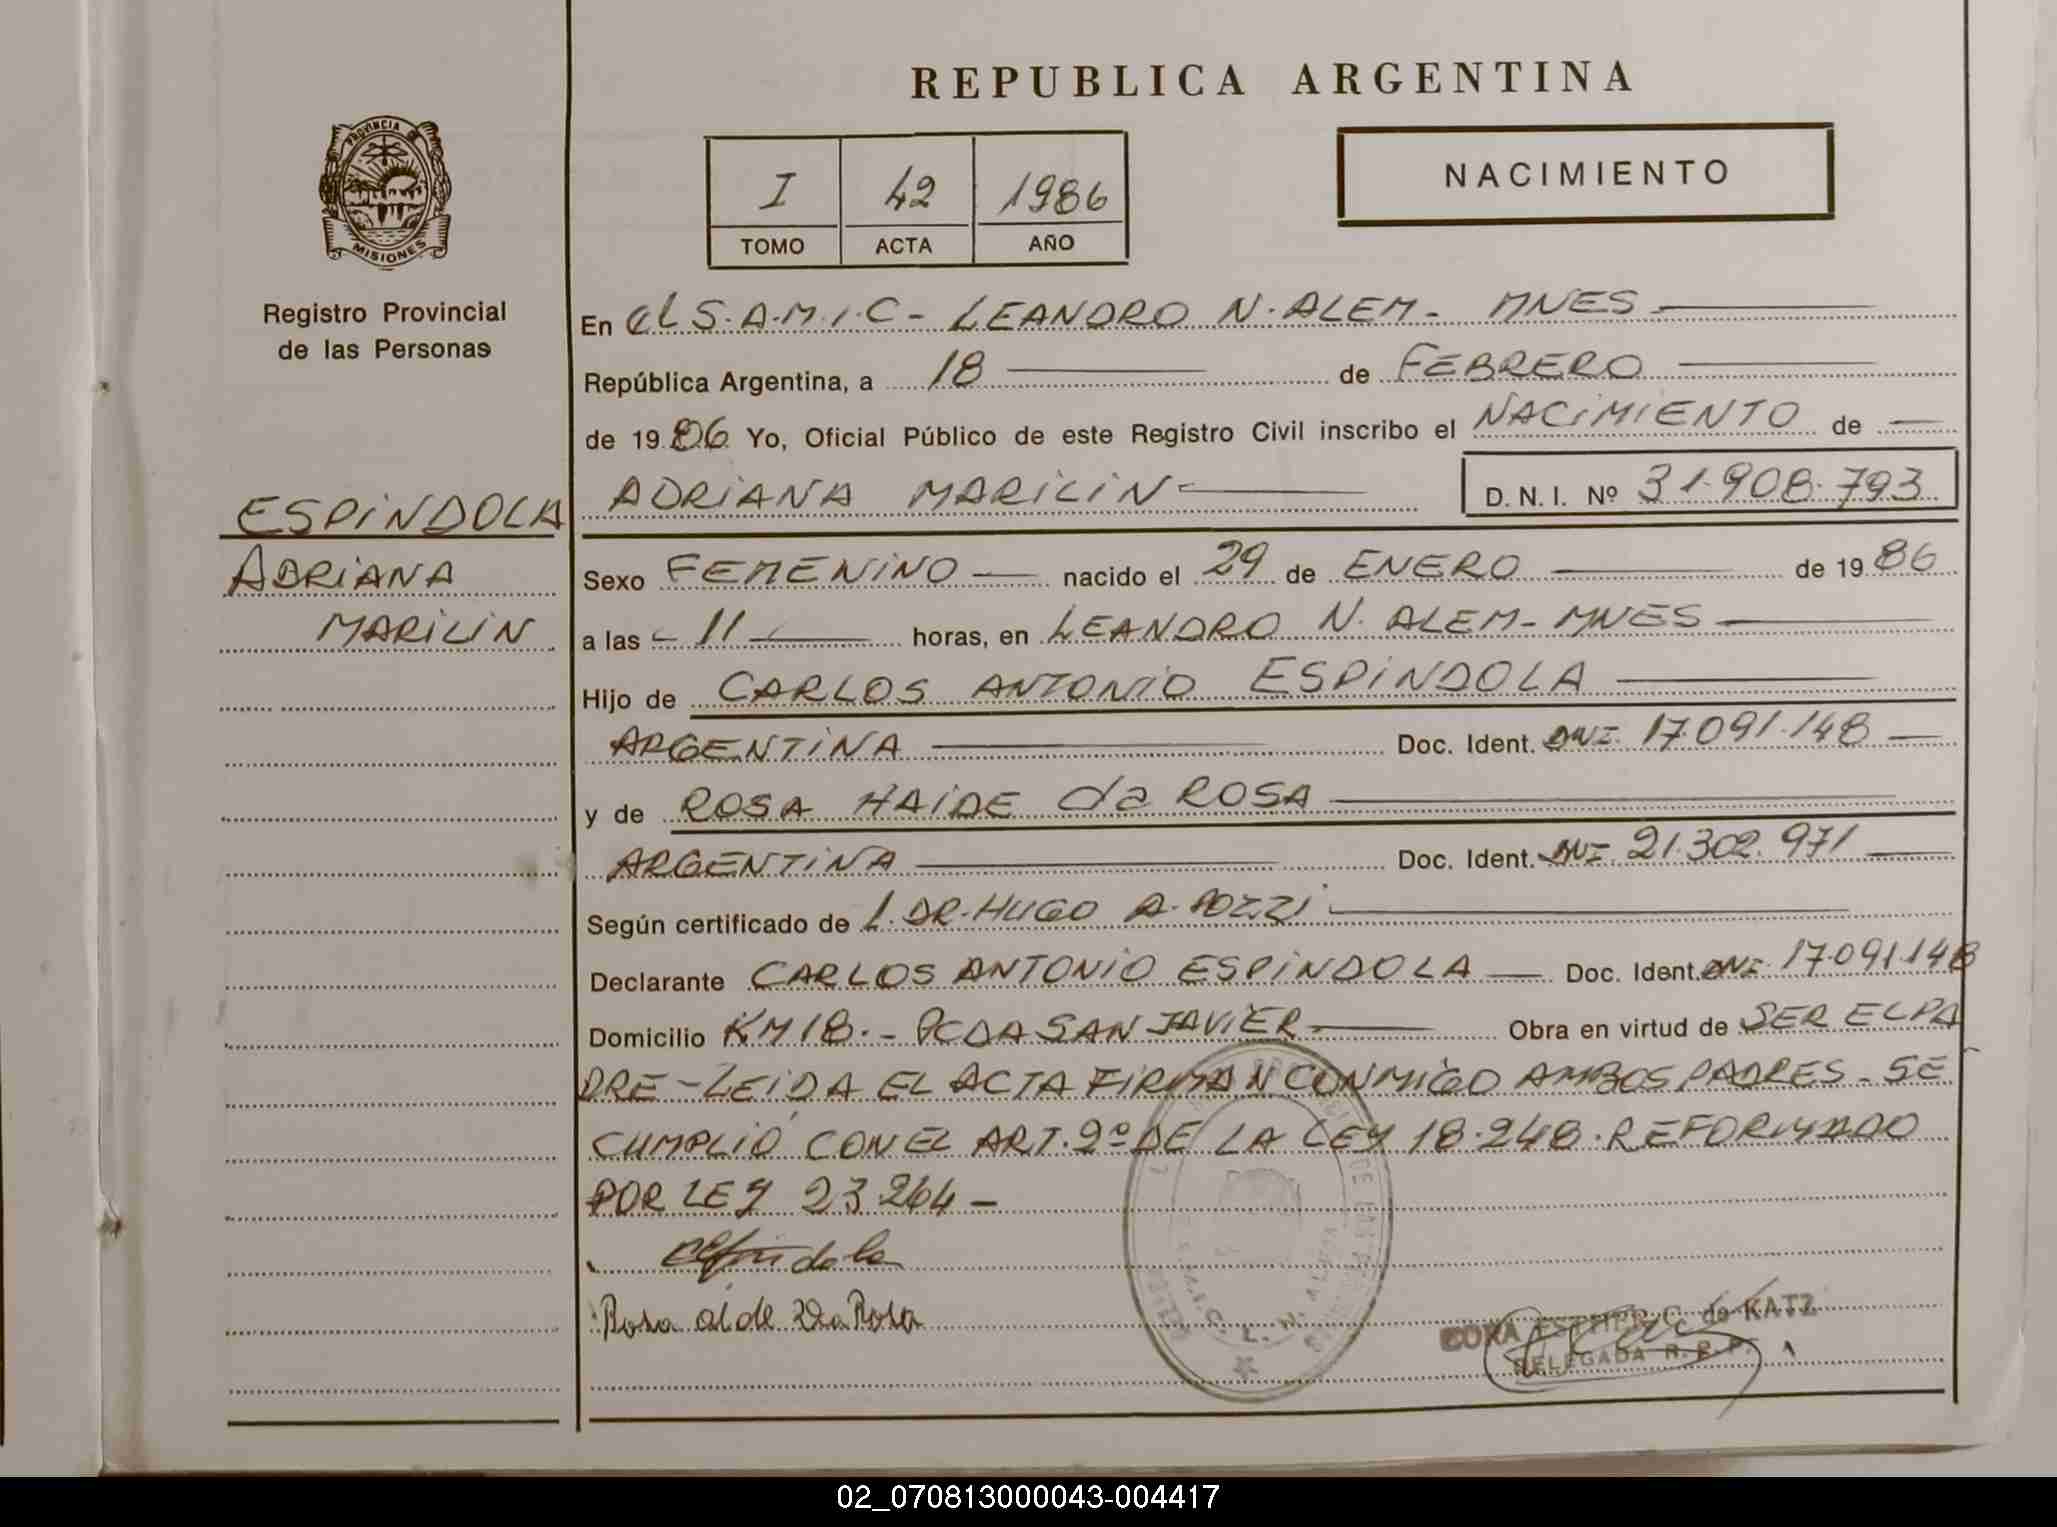 REPUBLICA ARGENTINA
PROVINCIA DE
MISIONES
Registro Provincial
de las Personas
I 42 1986
TOMO ACTA AÑO
NACIMIENTO
En el S.A.M.I.C- LEANDRO N. ALEM- MNES
República Argentina, a 18 de FEBRERO
de 1986 Yo, Oficial Público de este Registro Civil inscribo el NACIMIENTO de
ADRIANA MARILIN D.N.I. Nº 31.908.793
ESPINDOLA
ADRIANA
MARILIN
Sexo FEMENINO nacido el 29 de ENERO de 1986
a las 11 horas, en LEANDRO N. ALEM- MNES
Hijo de CARLOS ANTONIO ESPINDOLA
ARGENTINA Doc. Ident. DNI. 17.091.148
y de ROSA HAIDE da ROSA
ARGENTINA Doc. Ident. DNI 21.302.971
Según certificado de 1. DR. HUGO A. POZZI
Declarante CARLOS ANTONIO ESPINDOLA Doc. Ident. DNI. 17.091.148
Domicilio KM 18.- PCDA SAN JAVIER Obra en virtud de SER EL PA
DRE-LEIDA EL ACTA FIRMAN CONMIGO AMBOS PADRES- SE
CUMPLIO CON EL ART. 2º DE LA LEY 18.248. REFORMADO
POR LEY 23.264-
Rosa aide Da Rosa
ESTHER C. de KATZ
DELEGADA R.P.P.
02_070813000043-004417